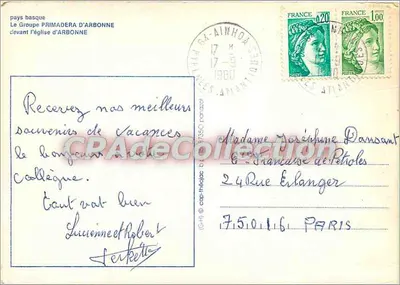 pays basque
Le Groupe PRIMADERA D'ARBONNE
devant l'église d'ARBONNE
Recevez nos meilleurs
souvenirs de vacances
le bonjour à
collègue.
Tout vat bien
Lucienne et Robert
FRANCE
0,20
FRANCE
1,00
AINHOA
17 -
1980
ATLANT
CPArdeCollection
Madame Joséphine Dansant
Cie Française de Pétroles
24 Rue Erlanger
75016 PARIS